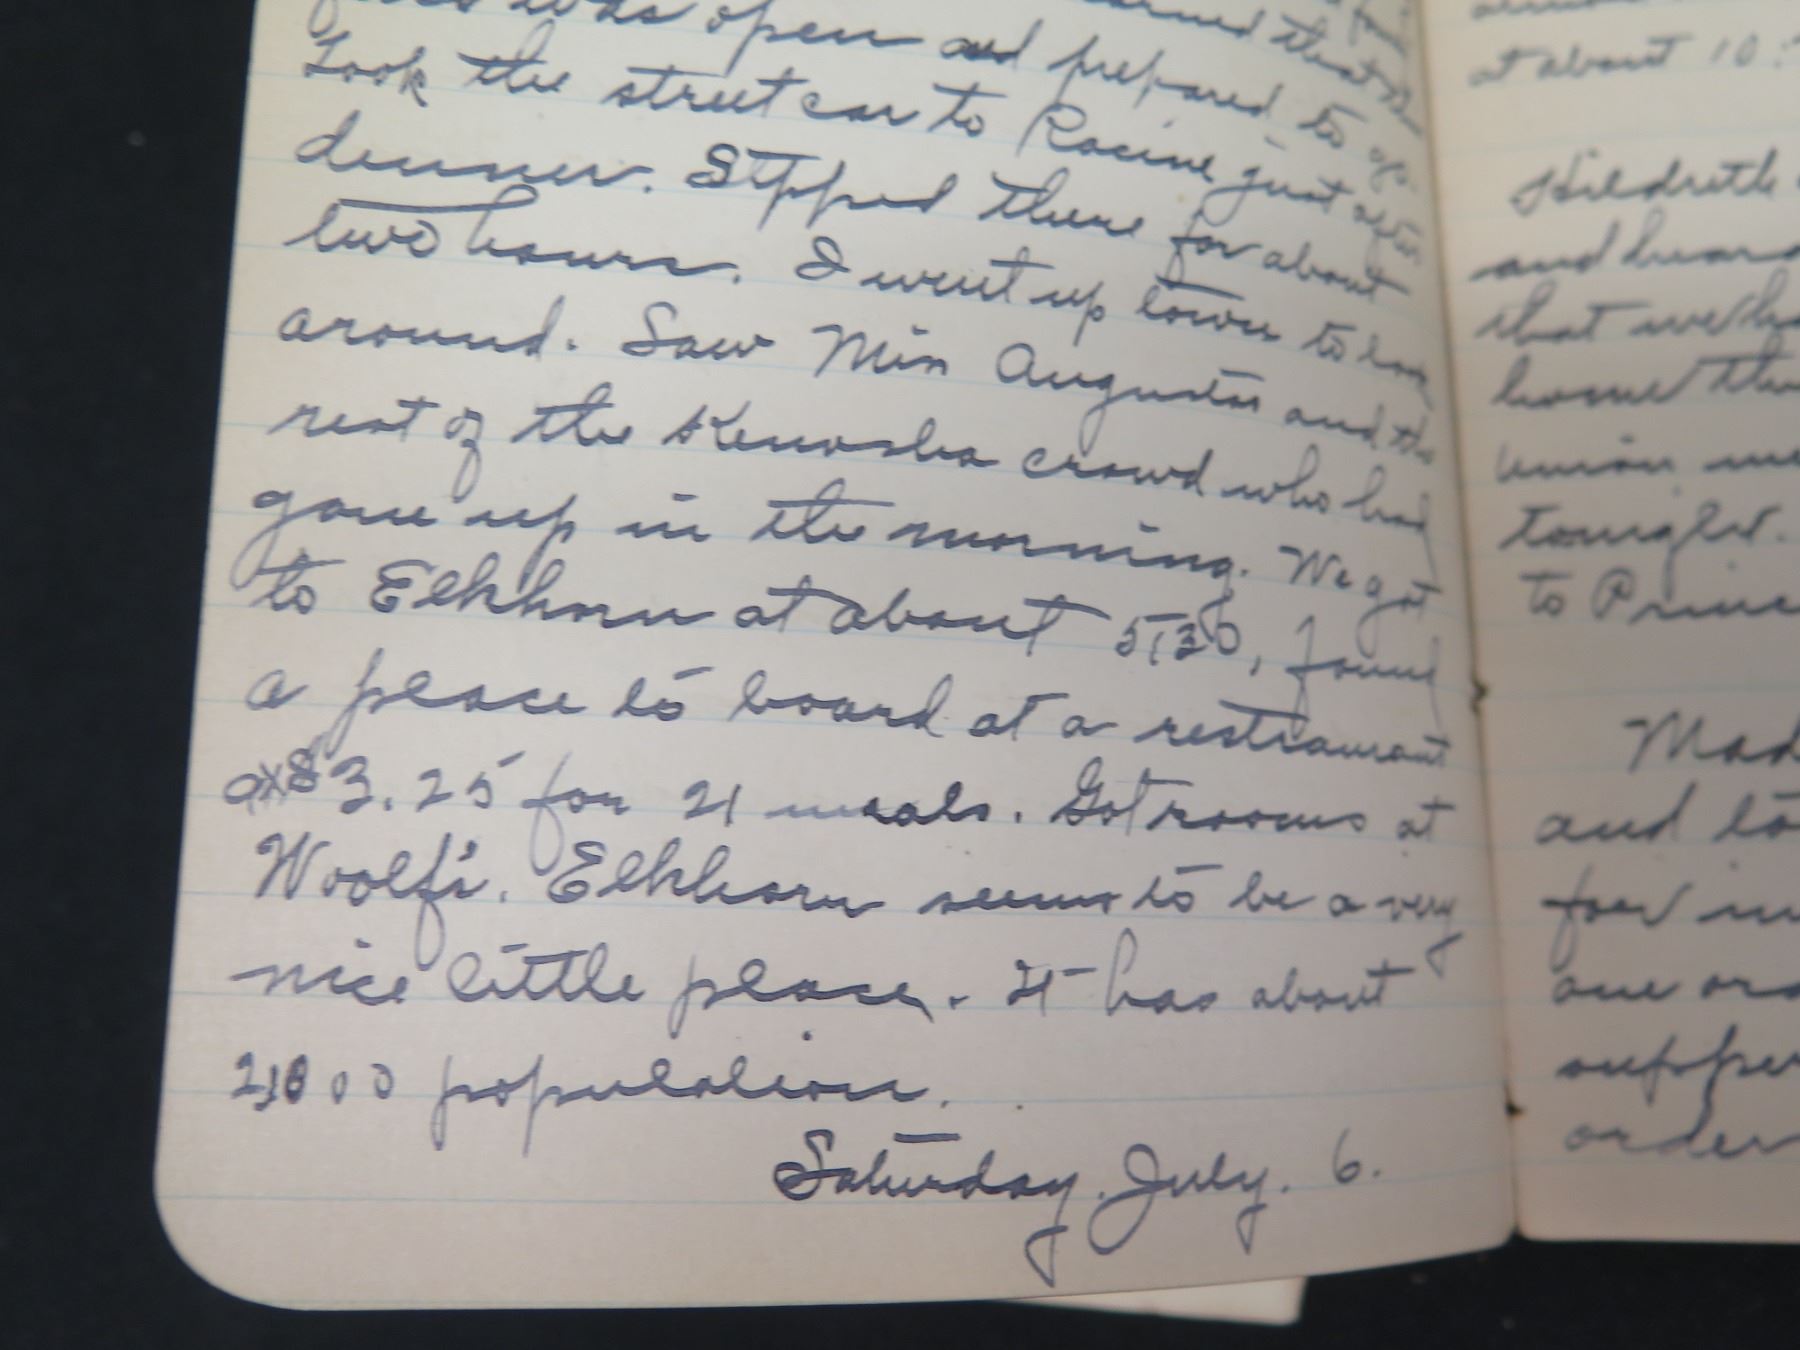 was open and prepared to
Took the street car to Racine just after
dinner. Stopped there for about
two hours. I went up town to look
around. Saw Miss Augusta and the
rest of the Kenosha crowd who had
gone up in the morning. We got
to Elkhorn at about 5:30, found
a place to board at a restraurant
at $3.25 for 21 meals. Got rooms at
Woolf's. Elkhorn seems to be a very
nice little place. It has about
population.
Saturday. July. 6.
at about 10
Hildreth
and heard
that we
home
union
tonight.
to
and
for
one
supper
order